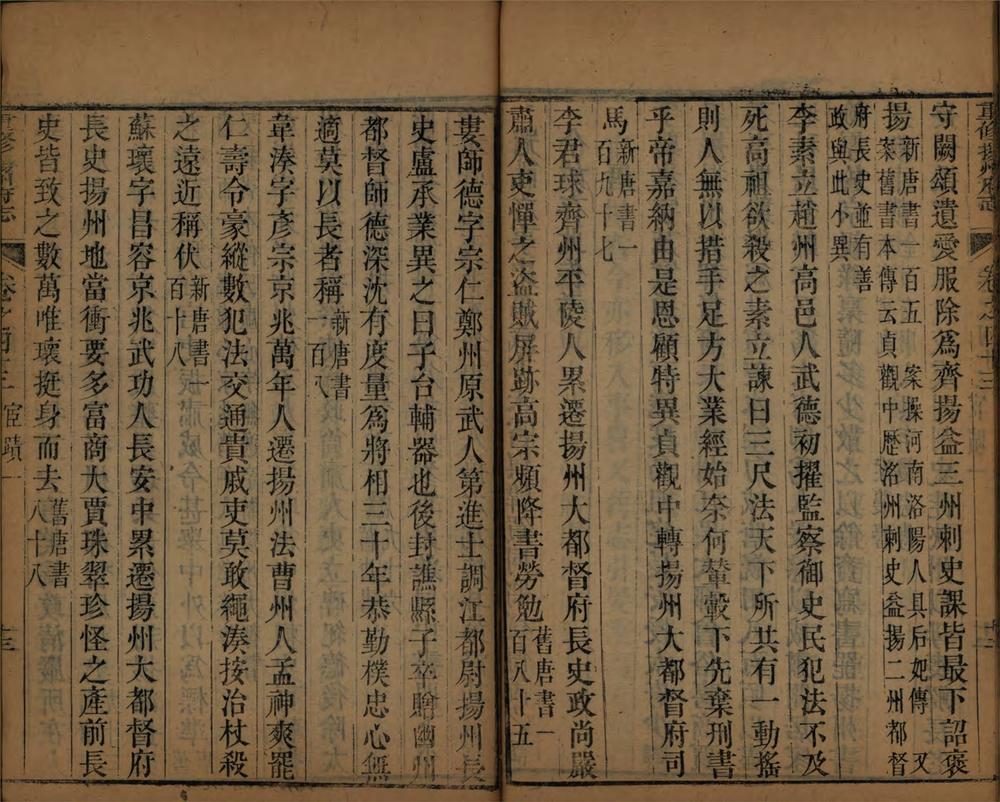 重修揚州府志 卷之四十三
守闕頌遺愛服除爲齊揚益三州刺史課皆最下詔褒
揚新唐書一百五 案操河南洛陽人具后妃傳 又
案舊書本傳云貞觀中歷洛州刺史益揚二州都督
府長史並有善
政與此小異
李素立趙州高邑人武德初擢監察御史民犯法不及
死高祖欲殺之素立諫曰三尺法天下所共有一動搖
則人無以措手足方大業經始奈何輦轂下先棄刑書
乎帝嘉納由是恩顧特異貞觀中轉揚州大都督府司
馬新唐書一
百九十七
李君球齊州平陵人累遷揚州大都督府長史政尚嚴
肅人吏憚之盜賊屏跡高宗頻降書勞勉舊唐書一
百八十五
婁師德字宗仁鄭州原武人第進士調江都尉揚州長
史盧承業異之曰子台輔器也後封譙縣子卒贈幽州
都督師德深沈有度量爲將相三十年恭勤樸忠心無
適莫以長者稱新唐書
一百八
韋湊字彥宗京兆萬年人遷揚州法曹州人孟神爽罷
仁壽令豪縱數犯法交通貴戚吏莫敢繩湊按治杖殺
之遠近稱伏新唐書一
百十八
蘇瓌字昌容京兆武功人長安中累遷揚州大都督府
長史揚州地當衝要多富商大賈珠翠珍怪之產前長
史皆致之數萬唯瓌挺身而去舊唐書
八十八
重修揚州府志 卷之四十三 宦蹟一 十三